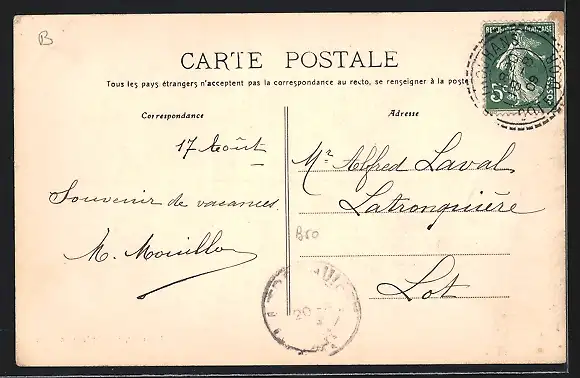 B
CARTE POSTALE
Tous les pays étrangers n'acceptent pas la correspondance au recto, se renseigner à la poste
RÉPUBLIQUE FRANÇAISE
5c
POSTES
Correspondance
Adresse
17 Août
Mr Alfred Laval
Souvenir de vacances
Latronquière
M. Mouillo
B50
Lot
20